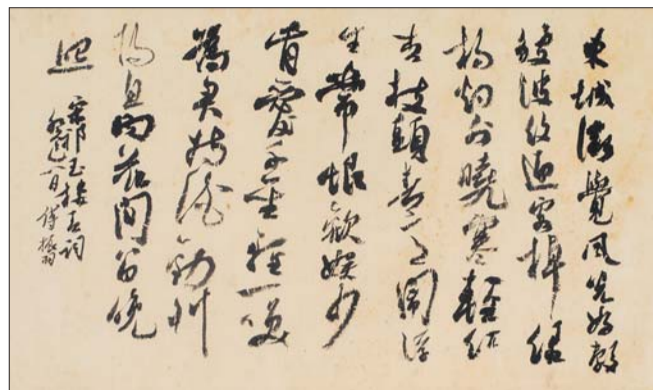 東城漸覺風光好縠
皺波紋迎客棹綠
楊烟外曉寒輕紅
杏枝頭春意鬧浮
生常恨歡娛少
肯愛千金輕一笑
為君持酒勸斜
陽且向花間留晚
照
宋祁玉樓春詞